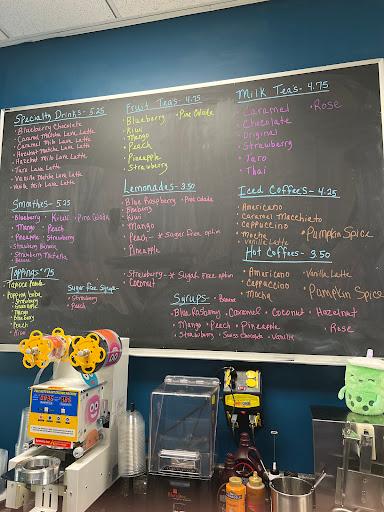 Specialty Drinks - 5.25
• Blueberry Chocolate
• Caramel Matcha Lava Latte
• Caramel Milk Lava Latte
• Hazelnut Matcha Lava Latte
• Hazelnut Milk Lava Latte
• Taro Lava Latte
• Vanilla Matcha Lava Latte
• Vanilla Milk Lava Latte
Smoothies - 5.25
• Blueberry • Kiwi • Pina Colada
• Mango • Peach
• Pineapple • Strawberry
• Strawberry Banana
• Strawberry
• Banana
Toppings .75
Tapioca Pearls
Popping boba
• Strawberry
Mango
Blueberry
Peach
• Kiwi
Sugar Free Syrups -
• Strawberry
• Peach
Fruit Teas - 4.75
• Blueberry • Pina Colada
• Kiwi
• Mango
• Peach
• Pineapple
• Strawberry
Lemonades - 3.50
• Blue Raspberry • Pina Colada
• Blueberry
• Kiwi
• Mango
• Peach - * Sugar Free option
• Pineapple
• Strawberry - * Sugar Free option
• Coconut
Milk Teas - 4.75
• Caramel • Rose
• Chocolate
• Original
• Strawberry
• Taro
• Thai
Iced Coffees - 4.25
• Americano
• Caramel Macchiato
• Cappuccino
• Mocha • Pumpkin Spice
• Vanilla Latte
Hot Coffees - 3.50
• Americano • Vanilla Latte
• Cappuccino
• Mocha • Pumpkin Spice
Syrups - • Banana
• Blue Raspberry • Caramel • Coconut • Hazelnut
• Mango • Peach • Pineapple • Rose
• Strawberry • Swiss Chocolate • Vanilla